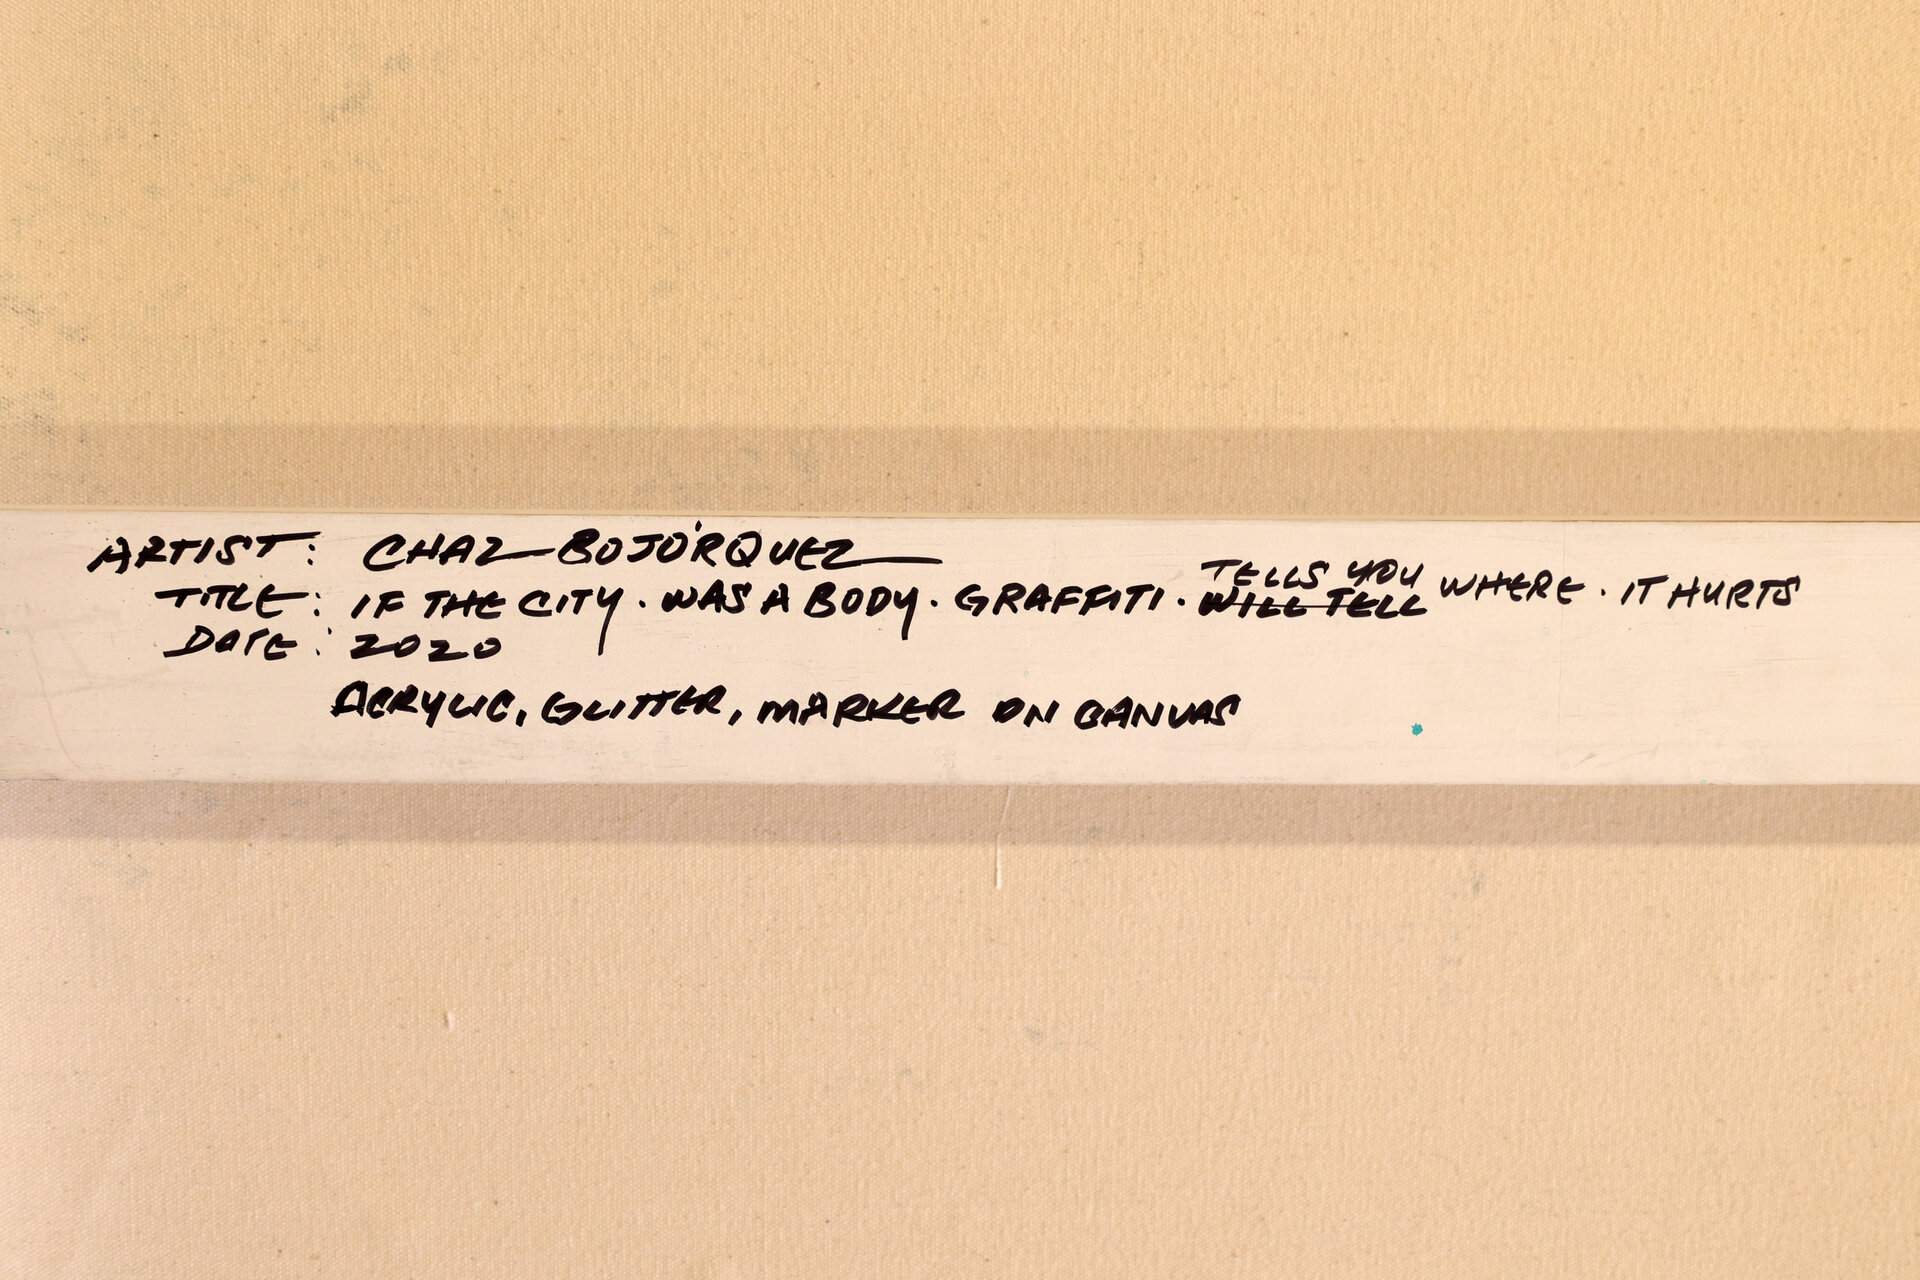 ARTIST: CHAZ BOJÓRQUEZ
TITLE: IF THE CITY · WAS A BODY · GRAFFITI · WILL TELL TELLS YOU WHERE · IT HURTS
DATE: 2020
ACRYLIC, GLITTER, MARKER ON CANVAS